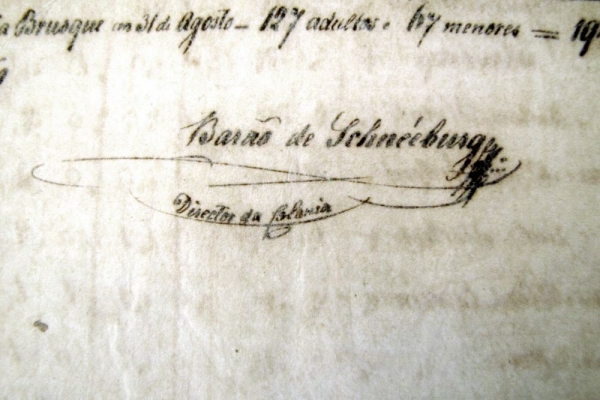 a Brusque em 31 de Agosto – 127 adultos e 67 menores = 19
Barão de Schnéeburg
Director da Colonia